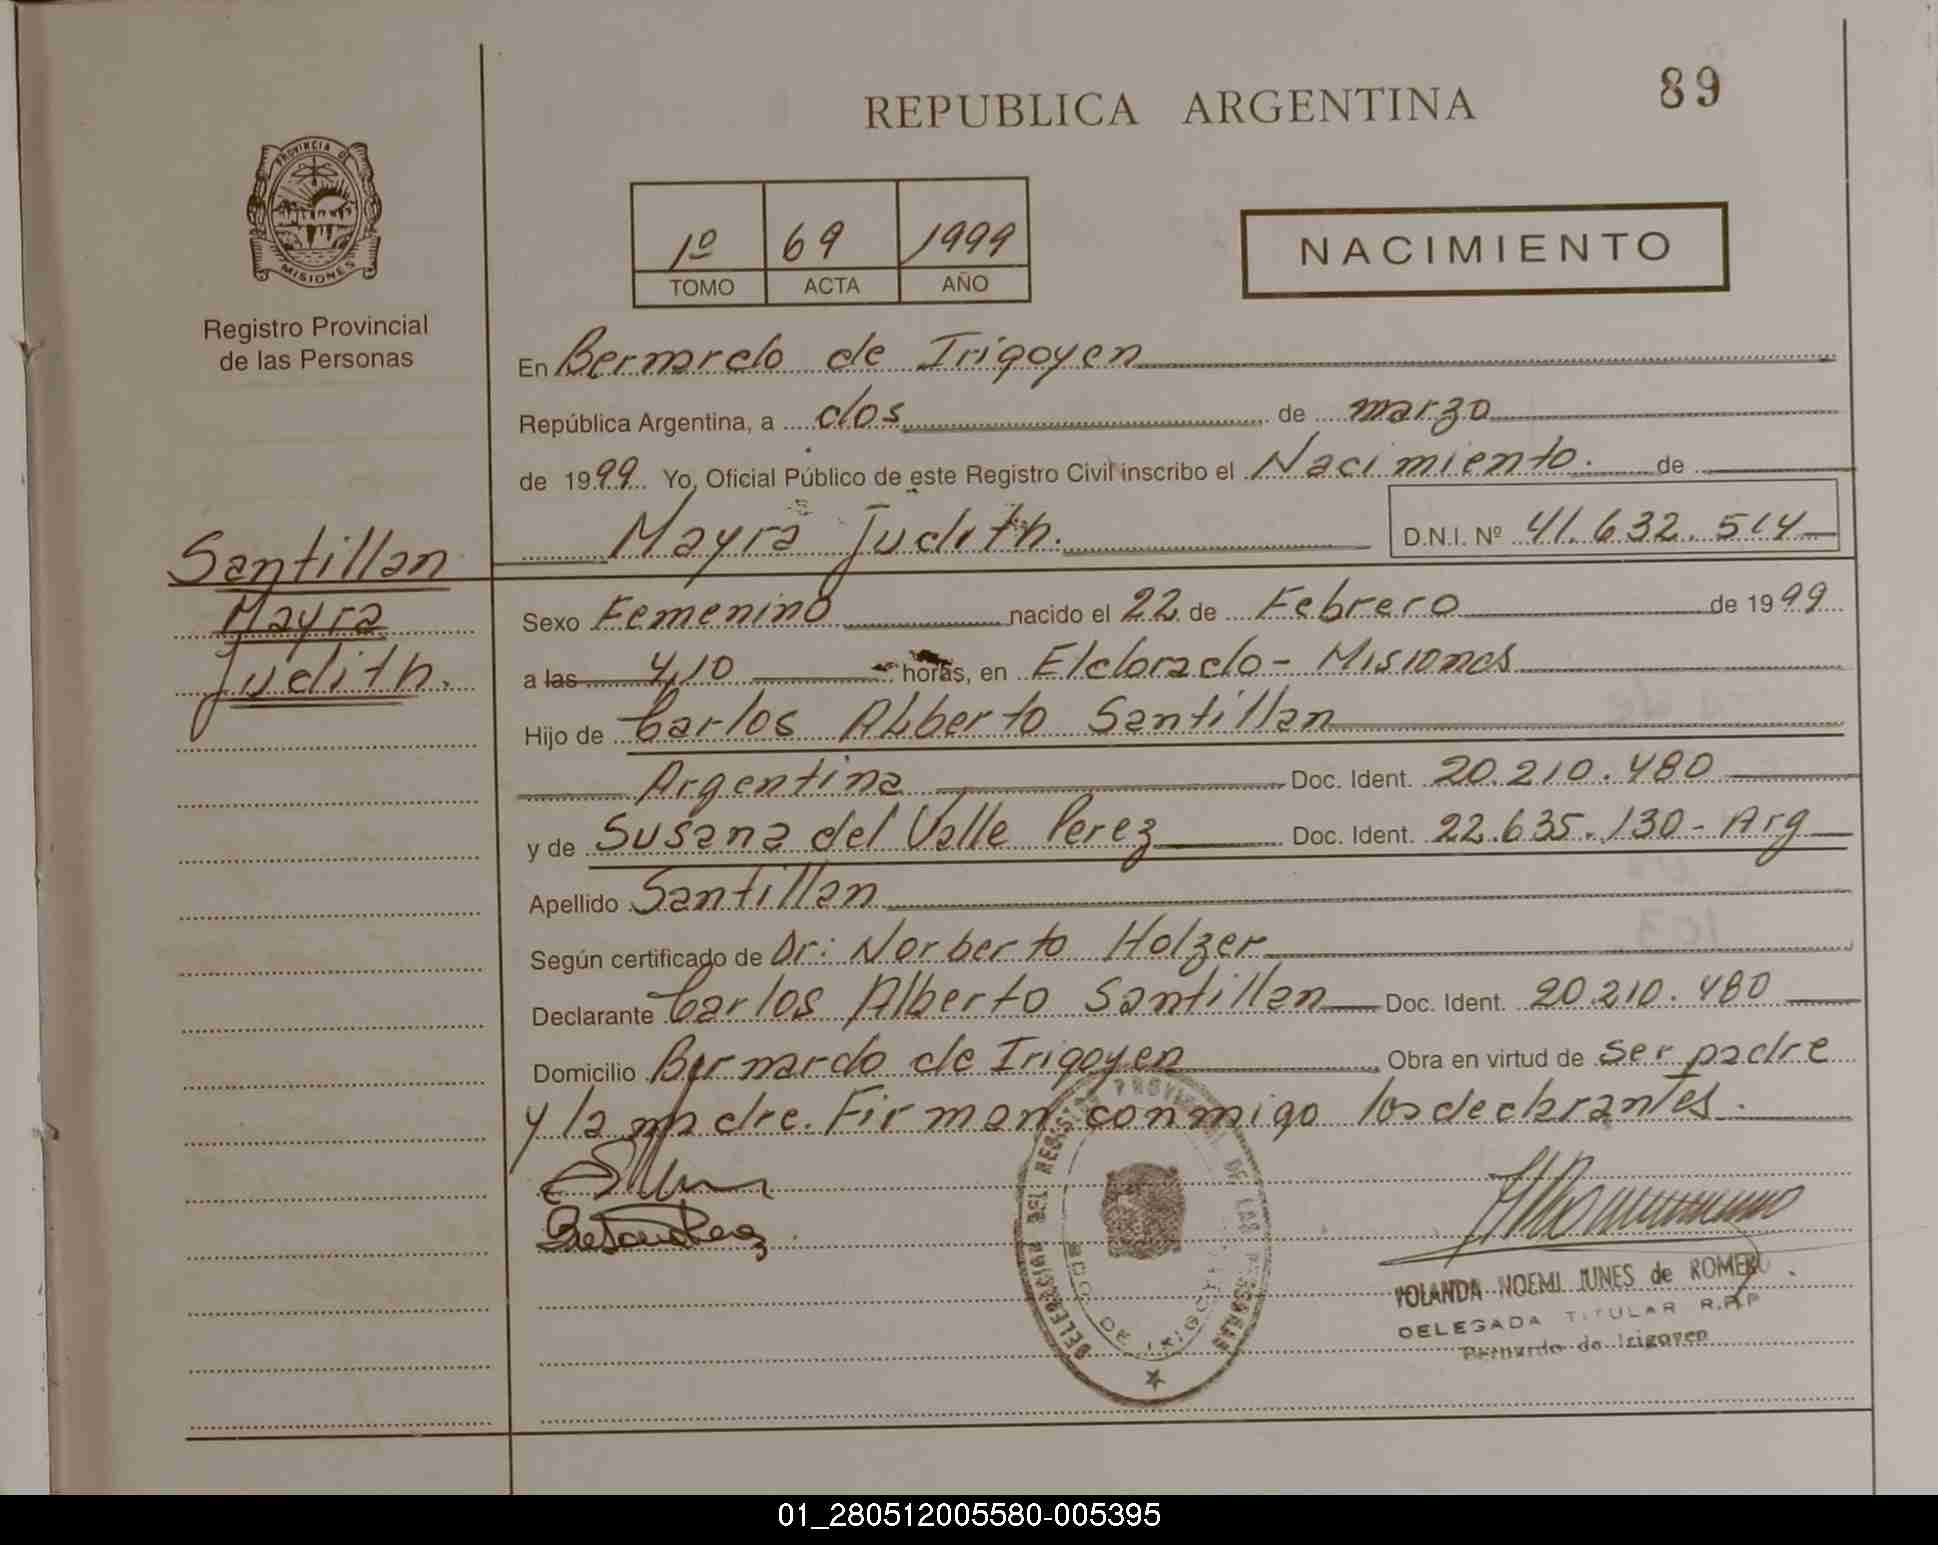 REPUBLICA ARGENTINA
89
PROVINCIA DE
MISIONES
Registro Provincial
de las Personas
1º 69 1999
TOMO ACTA AÑO
NACIMIENTO
En Bernardo de Irigoyen
República Argentina, a dos de marzo
de 1999 Yo, Oficial Público de este Registro Civil inscribo el Nacimiento. de
Mayra Judith. D.N.I. Nº 41.632.514
Santillan
Mayra
Judith.
Sexo Femenino nacido el 22 de Febrero de 1999
a las 4,10 horas, en Eldorado - Misiones
Hijo de Carlos Alberto Santillan
Argentina Doc. Ident. 20.210.480
y de Susana del Valle Perez Doc. Ident. 22.635.130 - Arg
Apellido Santillan
Según certificado de Dr: Norberto Holzer
Declarante Carlos Alberto Santillan Doc. Ident. 20.210.480
Domicilio Bernardo de Irigoyen Obra en virtud de ser padre
y la madre. Firman conmigo los declarantes.
DELEGACION DEL REGISTRO PROVINCIAL DE LAS PERSONAS
BDO. DE IRIGOYEN
YOLANDA NOEMI JUNES de ROMERO
DELEGADA TITULAR R.P.P
Bernardo de Irigoyen
01_280512005580-005395